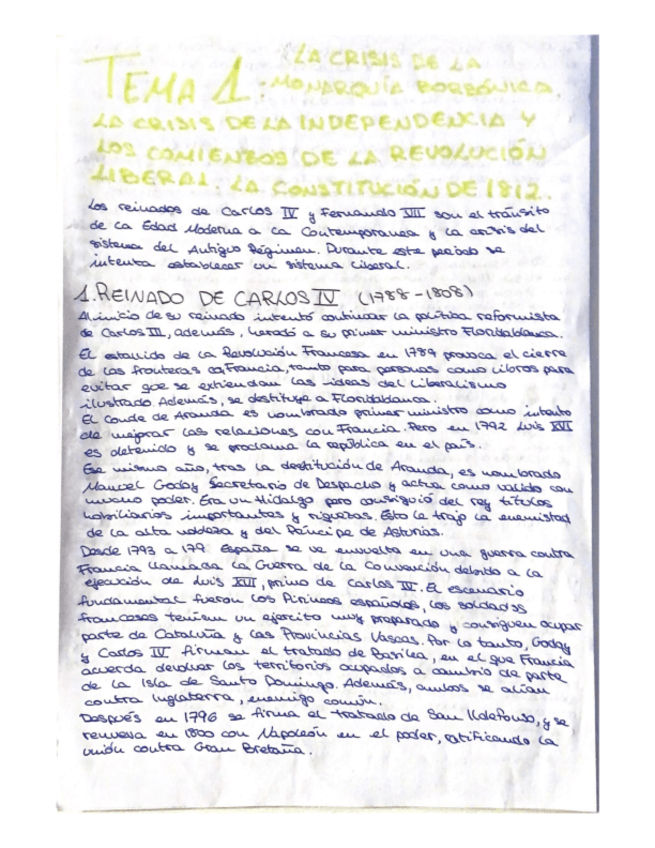 TEMA 1: LA CRISIS DE LA
MONARQUÍA BORBÓNICA.
LA CRISIS DE LA INDEPENDENCIA Y
LOS COMIENZOS DE LA REVOLUCIÓN
LIBERAL. LA CONSTITUCIÓN DE 1812.
Los reinados de Carlos IV y Fernando VII son el tránsito
de la Edad Moderna a la Contemporanea y la crisis del
sistema del Antiguo Régimen. Durante este periodo se
intenta establecer un sistema liberal.
1. REINADO DE CARLOS IV (1788-1808)
Al inicio de su reinado intentó continuar la política reformista
de Carlos III, además, heredó a su primer ministro Floridablanca.
El estallido de la Revolución Francesa en 1789 provoca el cierre
de las fronteras con Francia, tanto para personas como libros para
evitar que se extiendan las ideas del liberalismo
ilustrado. Además, se destituye a Floridablanca.
El Conde de Aranda es nombrado primer ministro como intento
de mejorar las relaciones con Francia. Pero en 1792 Luis XVI
es detenido y se proclama la república en el país.
Ese mismo año, tras la destitución de Aranda, es nombrado
Manuel Godoy Secretario de Despacho y actua como valido con
mucho poder. Era un Hidalgo pero consiguió del rey títulos
nobiliarios importantes y riquezas. Esto le trajo la enemistad
de la alta nobleza y del Príncipe de Asturias.
Desde 1793 a 179 España se ve envuelta en una guerra contra
Francia llamada la Guerra de la Convención debido a la
ejecución de Luis XVI, primo de Carlos IV. El escenario
fundamental fueron los Pirineos españoles, los soldados
franceses tenían un ejercito muy preparado y consiguen ocupar
parte de Cataluña y las Provincias Vascas. Por lo tanto, Godoy
y Carlos IV firman el tratado de Basilea, en el que Francia
acuerda devolver los territorios ocupados a cambio de parte
de la Isla de Santo Domingo. Además, ambos se alían
contra Inglaterra, enemigo común.
Después en 1796 se firma el tratado de San Ildefonso, y se
renueva en 1800 con Napoleón en el poder, ratificando la
unión contra Gran Bretaña.